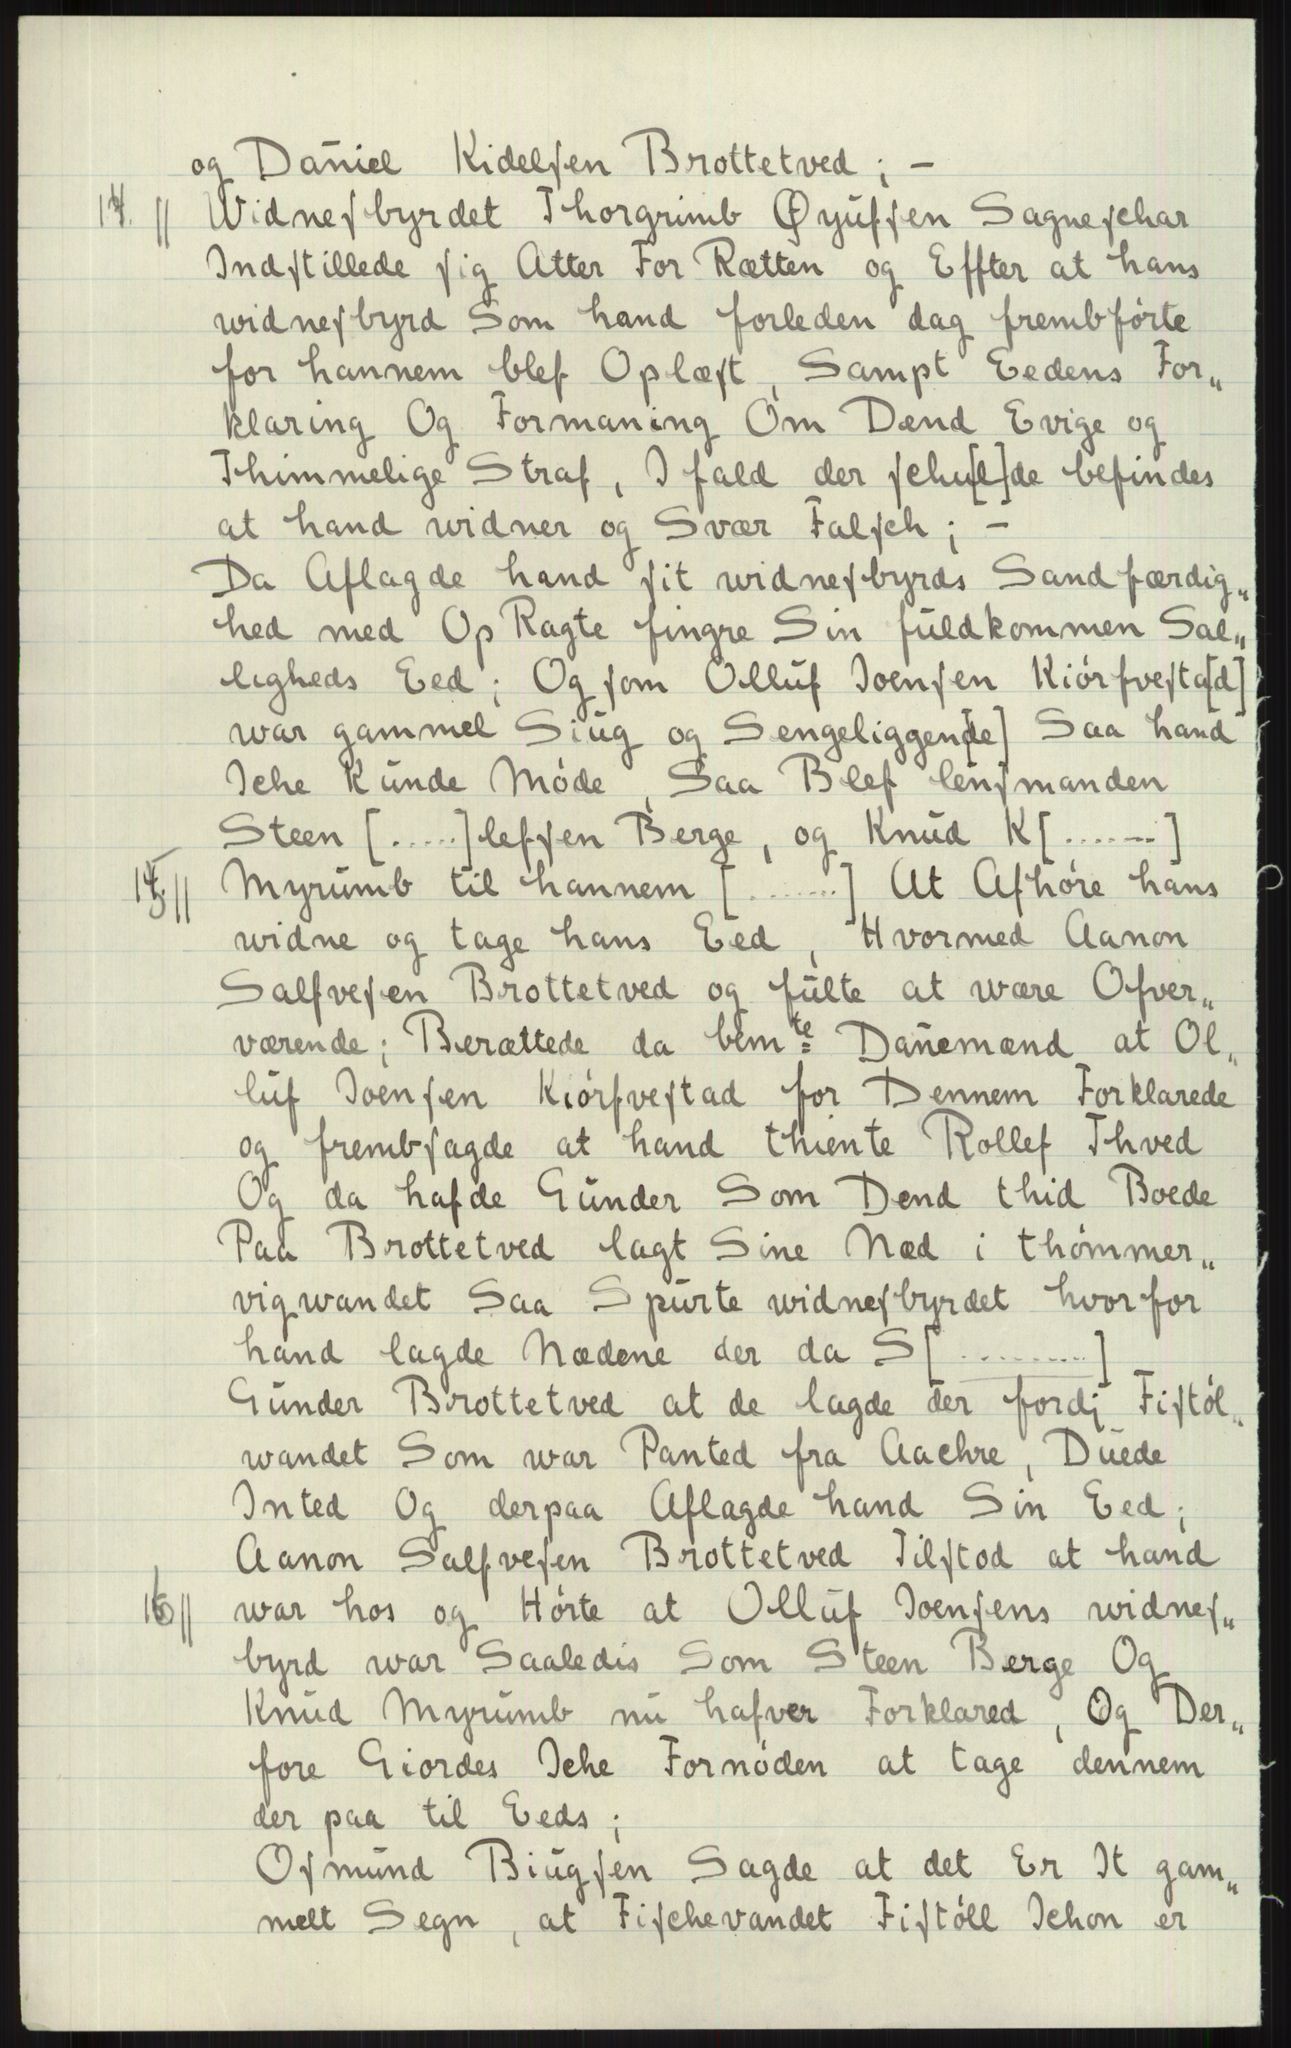 og Daniel Kidelſen Brottetved ; —
14. // Widneſbyrdet Thorgrimb Øyufſen Sagneſchar
Indſtillede ſig Atter For Rætten og Effter at hans
widneſbyrd Som hand forleden dag frembførte
for hannem blef Oplæſt, Sampt Eedens For„
klaring Og Formaning Om Dænd Evige og
Thimmelige Straf, I fald der ſchu[l]de befindes
at hand widner og Svær Falſch ; —
Da Aflagde hand ſit widneſbyrds Sandfærdig„
hed med Op Ragte fingre Sin fuldkommen Sal„
ligheds Eed ; Og ſom Olluf Joenſen Kiórfveſta[d]
war gammel Siug og Sengeliggen[de] Saa hand
Iche Kunde Móde, Saa Blef lenſmanden
Steen [.....]lefſen Berge, og Knud K[.......]
15. // Myrumb til hannem [........] At Afhøre hans
widne og tage hans Eed, Hvormed Aanon
Salfveſen Brottetved og fulte at wære Ofver„
værende ; Berættede da bemte Danemænd at Ol„
luf Joenſen Kiórfveſtad for Dennem Forklarede
og frembſagde at hand thiente Rollef Thved
Og da hafde Gunder Som Dend thid Boede
Paa Brottetved lagt Sine Næd i thómmer„
vigwandet Saa Spurte widneſbyrdet hvorfor
hand lagde Nædene der da S[..........]
Gunder Brottetved at de lagde der fordj Fiſtól„
wandet Som war Panted fra Aachre, Duede
Inted Og derpaa Aflagde hand Sin Eed ;
Aanon Salfveſen Brottetved Tilſtod at hand
16 // war hos og Hórte at Olluf Joenſens widneſ„
byrd war Saaledis Som Steen Berge Og
Knud Myrumb nu hafver Forklared, Og Der„
fore Giordes Iche Fornóden at tage dennem
der paa til Eeds ;
Oſmund Biugſen Sagde at det Er It gam„
melt Segn, at Fiſchevandet Fiſtóll Ichon er